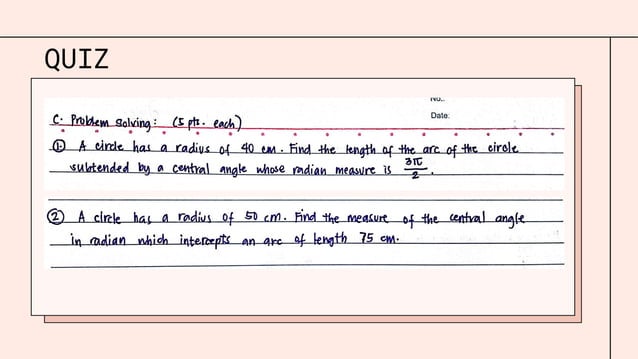 QUIZ
No.:
Date:
C. Problem Solving: (5 pts. each)
① A circle has a radius of 40 cm. Find the length of the arc of the circle
subtended by a central angle whose radian measure is 3π/2.
② A circle has a radius of 50 cm. Find the measure of the central angle
in radian which intercepts an arc of length 75 cm.